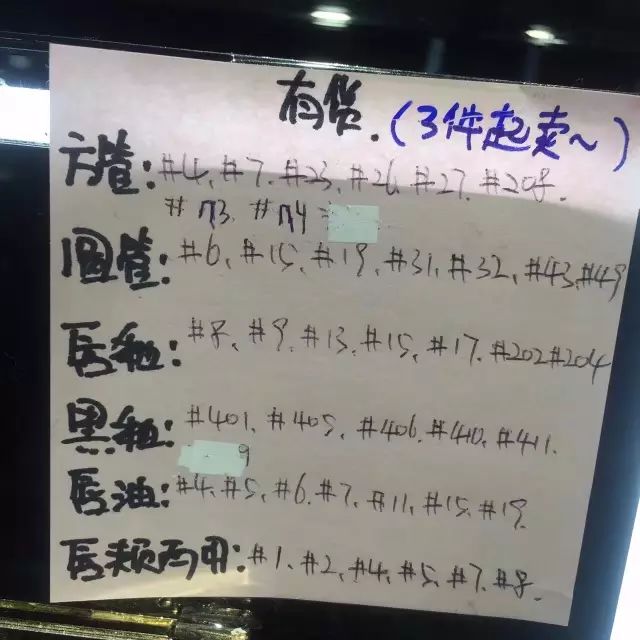 有货.(3件起卖~)
方管:#4、#7、#23、#26、#27、#208.
#173、#174
圆管:#6、#15、#19、#31、#32、#43、#49
唇釉:#8、#9、#13、#15、#17、#202#204
黑釉:#401、#405、#406、#410、#411.
9
唇油:#4、#5、#6、#7、#11、#15、#19.
唇颊两用:#1、#2、#4、#5、#7、#8.